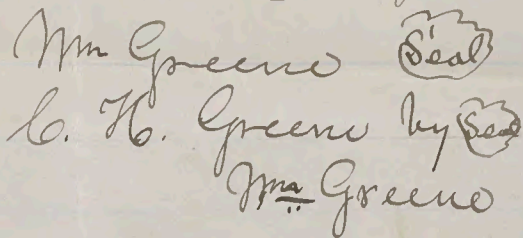 Wm Greene Seal
C. H. Greene by Seal
Wm Greene